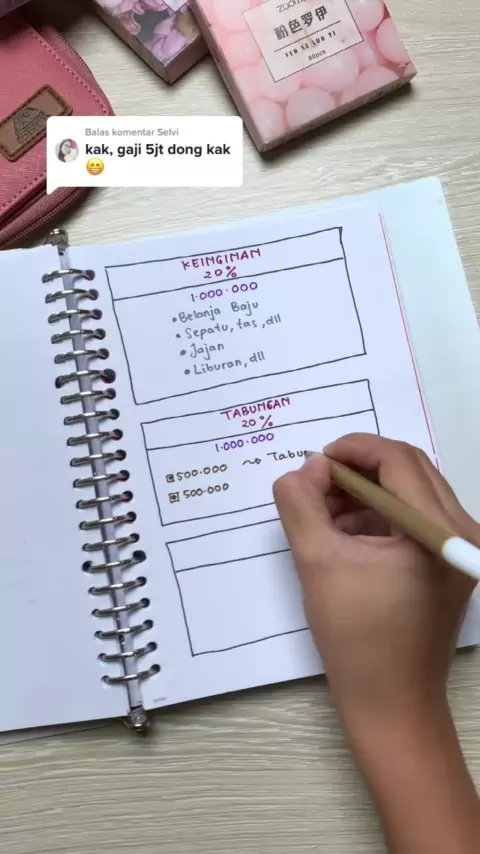 zooma
粉色罗伊
FEN SE LUO YI
80pcs
Balas komentar Selvi
kak, gaji 5jt dong kak
😁
KEINGINAN
20%
1.000.000
• Belanja Baju
• Sepatu, tas, dll
• Jajan
• Liburan, dll
TABUNGAN
20%
1.000.000
500.000 ~> Tabu
500.000